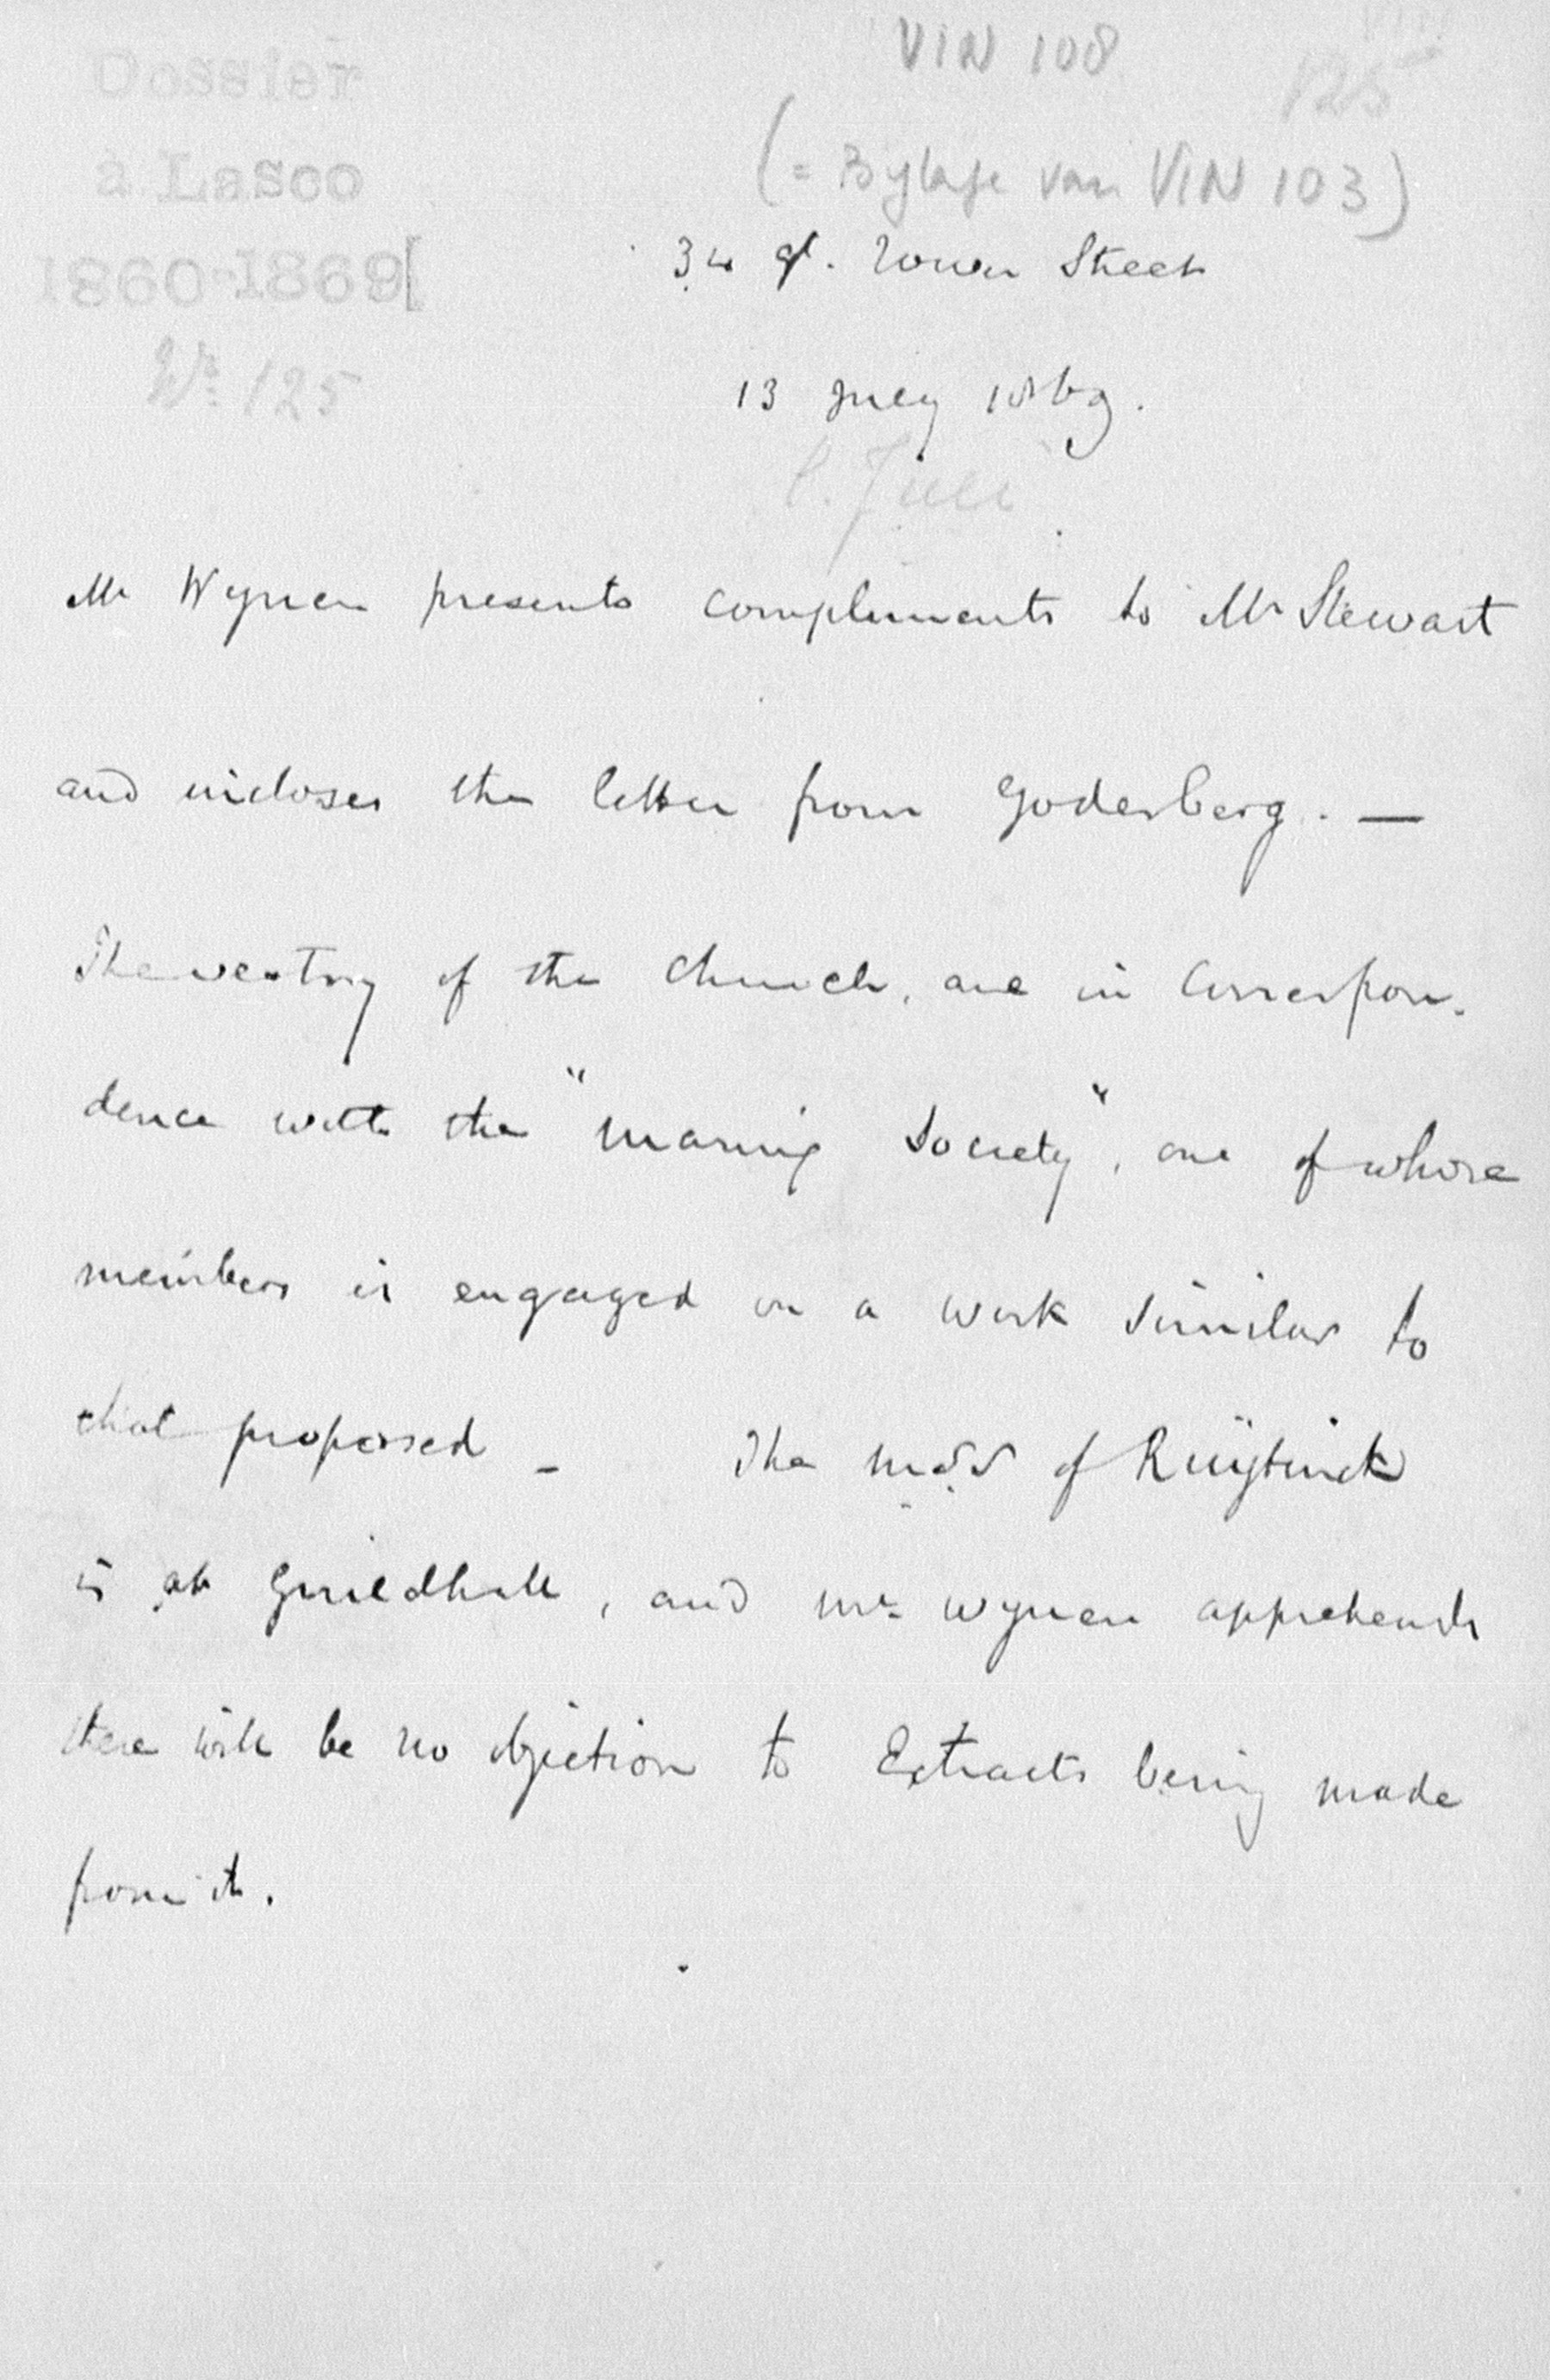 Dossier
a Lasco
1860-1869
No. 125
VIN 108
125
(= Bylage van VIN 103)
34 Gt. Tower Street
13 July 1869.
Mr Wynen presents compliments to Mr Stewart
and incloses the letter from Godesberg. —
The vestry of the church, are in Correspon-
dence with the "Marnix Society", one of whose
members is engaged on a work similar to
that proposed – The MSS of Ruÿtinck
is at Guildhall, and Mr Wynen apprehends
there will be no objection to Extracts being made
from it.